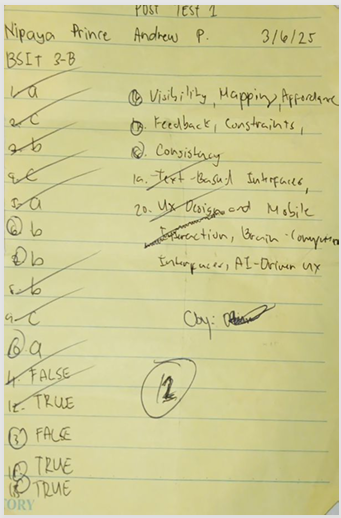 POST TEST 1
Nipaya Prince Andrew P. 3/6/25
BSIT 3-B
1. a
2. c
3. b
4. c
5. a
6. b
7. b
8. b
9. c
10. a
11. FALSE
12. TRUE
13. FALSE
14. TRUE
15. TRUE
16. Visibility, Mapping, Affordance
17. Feedback, Constraints,
18. Consistency
19. Text-Based Interfaces,
20. UX Design and Mobile
Interaction, Brain-Computer
Interfaces, AI-Driven UX
Cby:
12
TORY